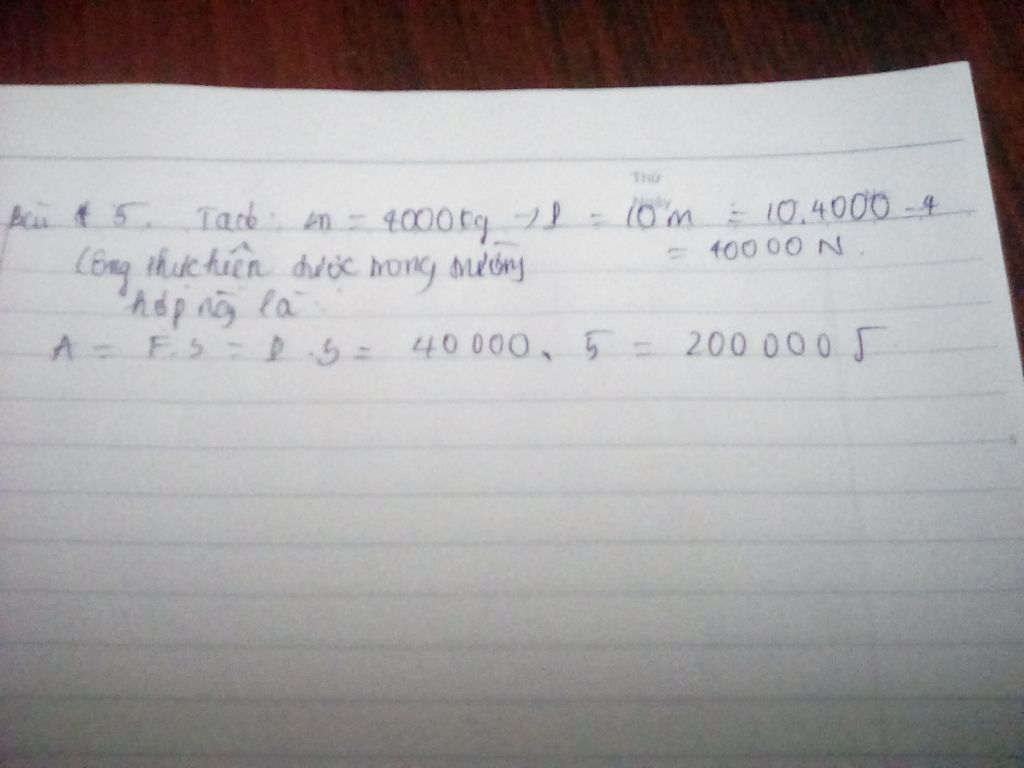 Thứ
Ngày
Bài 5. Ta có: m = 4000kg → P = 10m = 10.4000 = 4
= 40000 N.
Công thực hiện được trong trường
hợp này là:
A = F.s = P.s = 40 000. 5 = 200 000 J
5